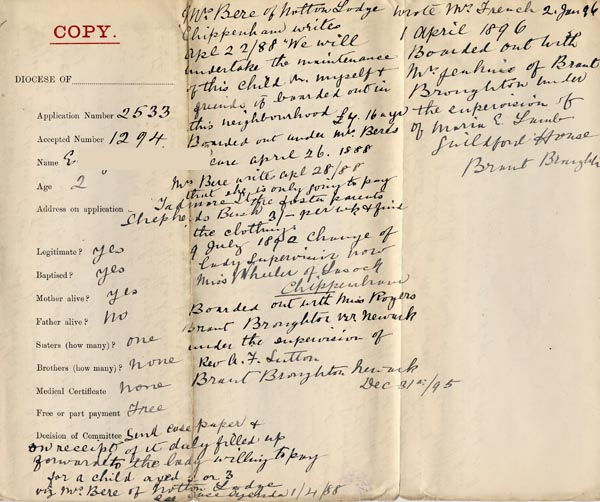 COPY.
DIOCESE OF
Application Number 2533
Accepted Number 1294.
Name E
Age 2
Address on application Tadmor St
Shepherds Bush
Legitimate? yes
Baptised? yes
Mother alive? yes
Father alive? no
Sisters (how many)? one
Brothers (how many)? none
Medical Certificate none
Free or part payment Free
Decision of Committee Send case paper &
on receipt of it duly filled up
forward to the lady willing to pay
for a child aged 2 or 3
viz Mrs Bere of Notton Lodge
See case Agenda 1/4/88
Mrs Bere of Notton Lodge
Chippenham writes
apl 22/88 "We will
undertake the maintenance
of this child Mr. myself &
friends if boarded out in
this neighbourhood £7. 16 a yr
Boarded out under Mrs Beres
care april 26. 1888
Mrs Bere writes apl 28/88
that she is only going to pay
the foster parents
3/- per wk & find
the clothing
9 July 1892 Change of
Lady Supervisor now
Miss Wheeler of Lacock
Chippenham
Boarded out with Miss Rogers
Brant Broughton nr Newark
under the supervision of
Rev A. F. Sutton
Brant Broughton Newark
Dec 31st/95
wrote Mrs French 2. Jan 96
1 April 1896
Boarded out with
Mrs Jenkins of Brant
Broughton under
the supervision of
of Maria E Lamb
Guildford House
Brant Broughton